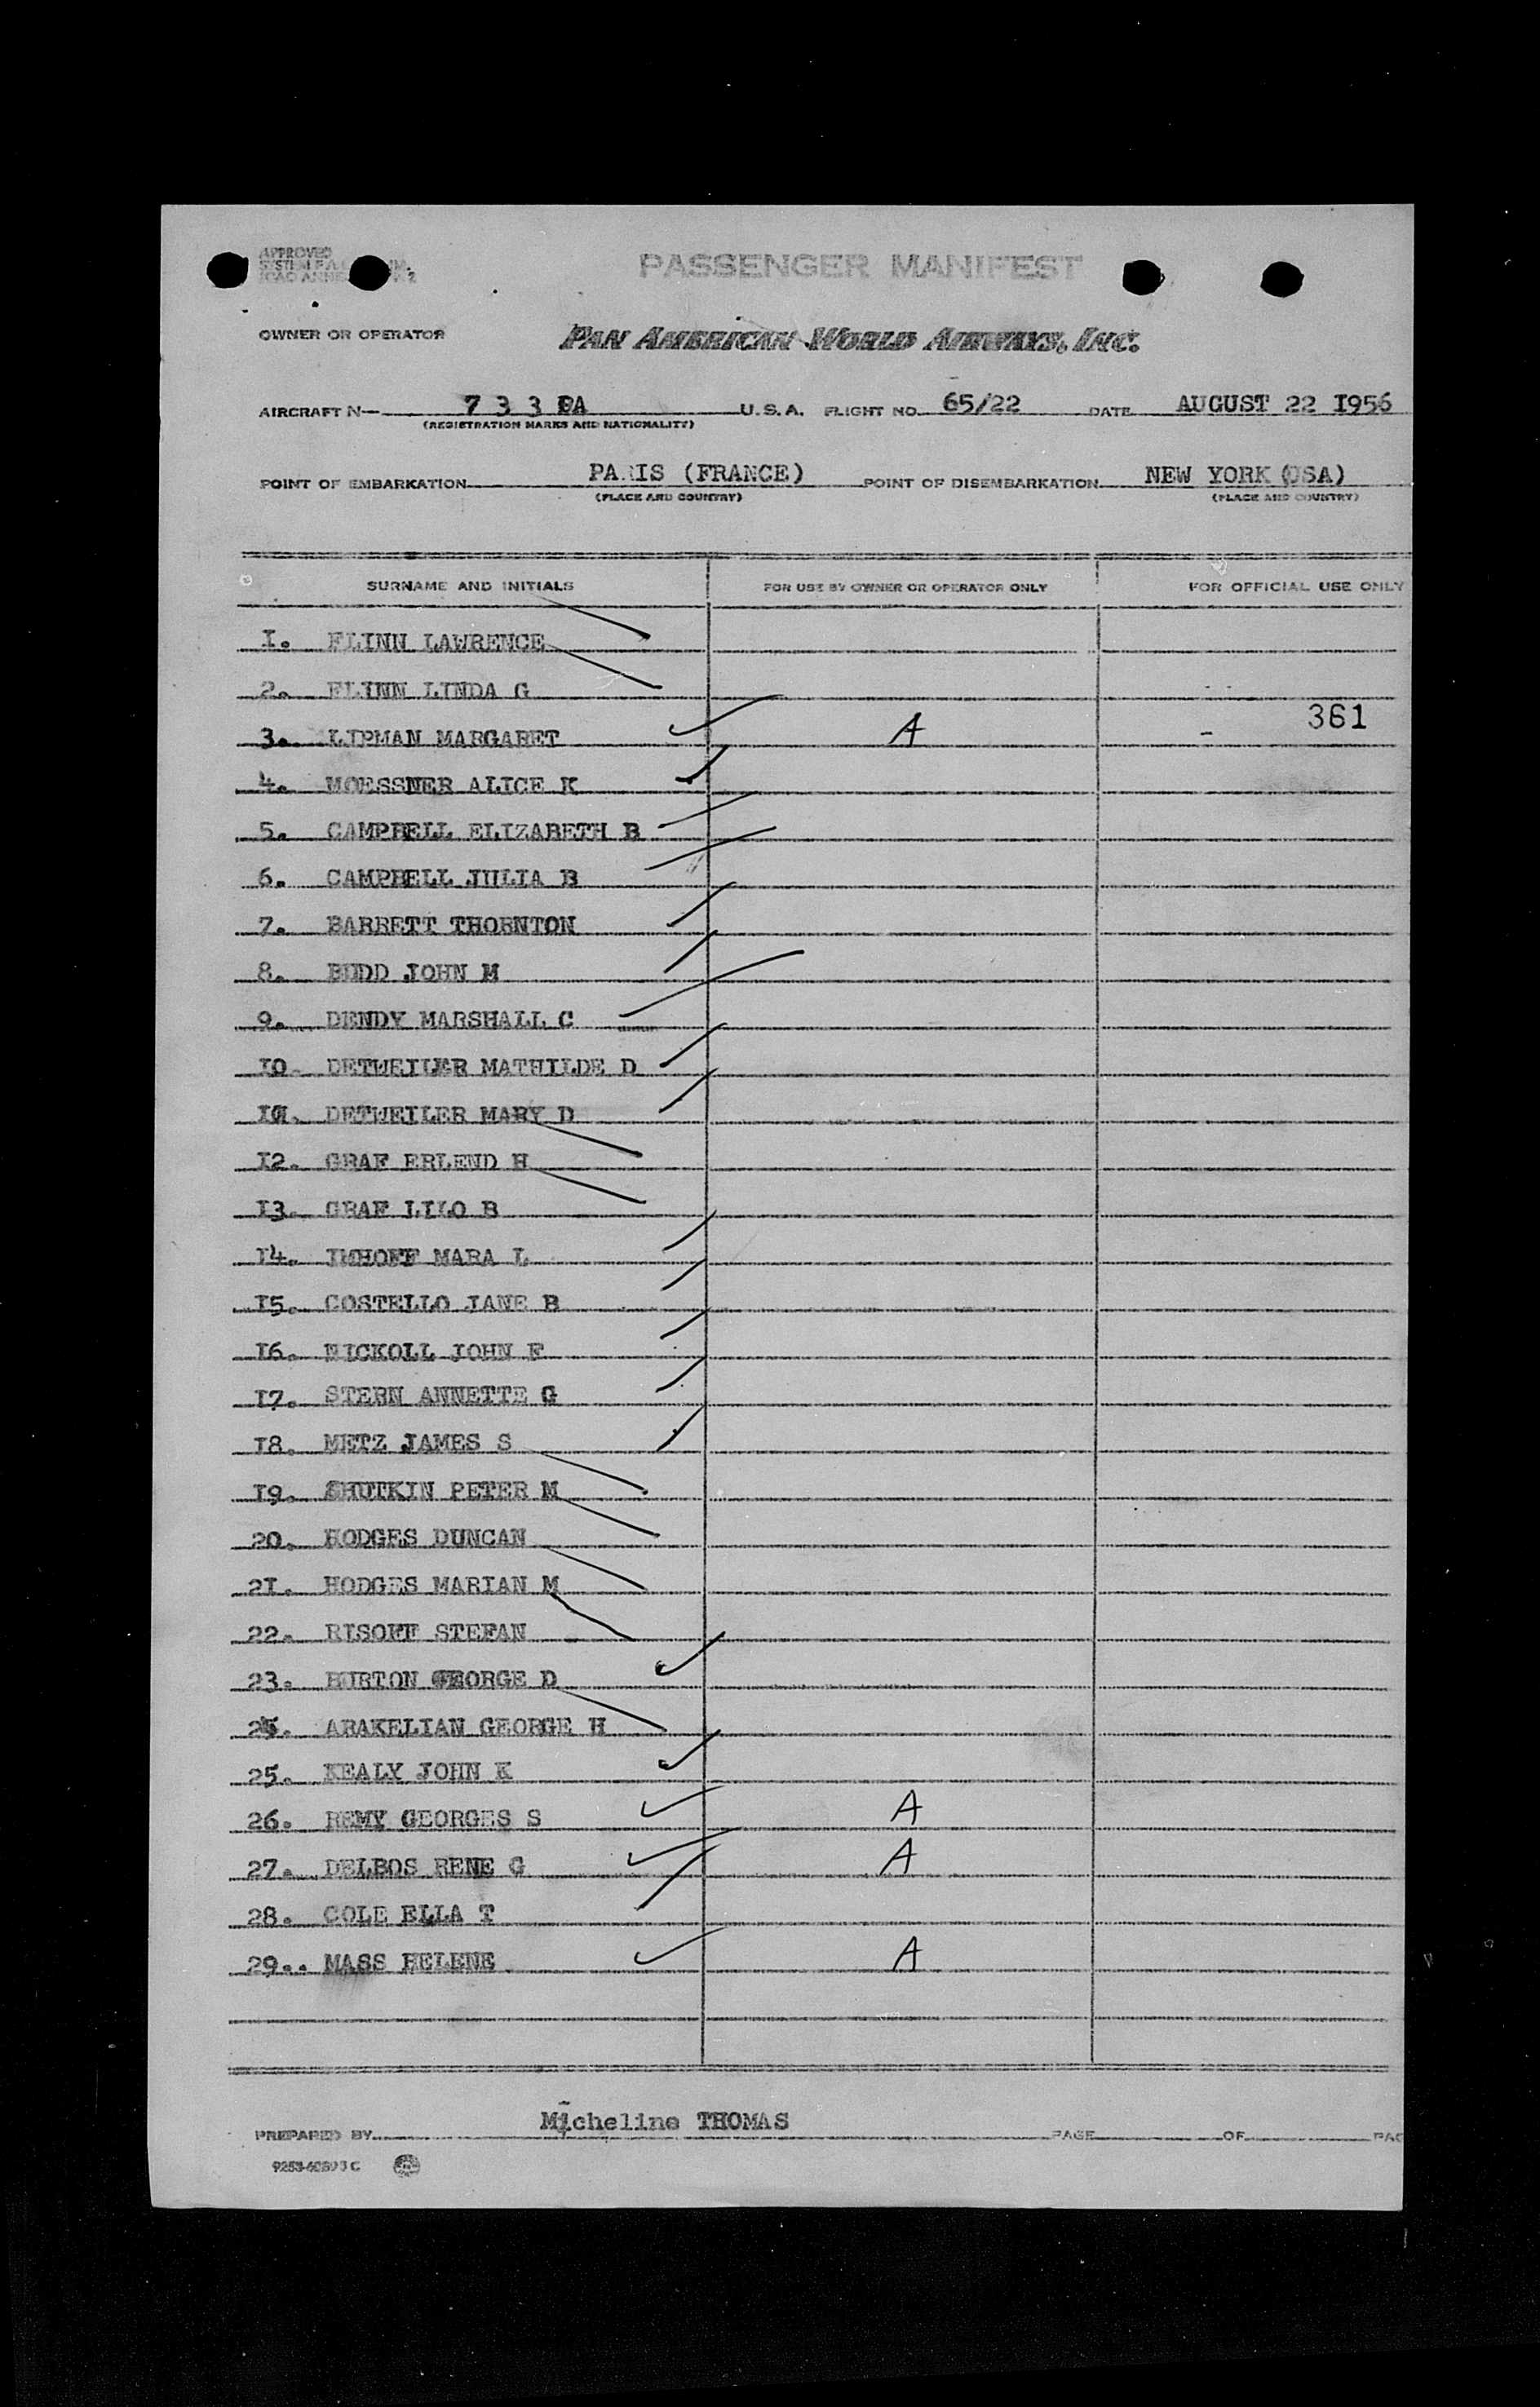 APPROVED
PASSENGER MANIFEST
OWNER OR OPERATOR PAN AMERICAN WORLD AIRWAYS, INC.
AIRCRAFT N— 7 3 3 PA U.S.A. FLIGHT NO. 65/22 DATE AUGUST 22 I956
(REGISTRATION MARKS AND NATIONALITY)
POINT OF EMBARKATION PARIS (FRANCE) POINT OF DISEMBARKATION NEW YORK (USA)
(PLACE AND COUNTRY) (PLACE AND COUNTRY)
SURNAME AND INITIALS FOR USE BY OWNER OR OPERATOR ONLY FOR OFFICIAL USE ONLY
I. FLINN LAWRENCE
2. FLINN LINDA G
3. LIPMAN MARGARET A 361
4. MOESSNER ALICE K
5. CAMPBELL ELIZABETH B
6. CAMPBELL JULIA B
7. BARRETT THORNTON
8. BUDD JOHN M
9. DENDY MARSHALL C
I0. DETWEILER MATHILDE D
II. DETWEILER MARY D
I2. GRAF ERLEND H
I3. GRAF LILO B
I4. IMHOFF MARA L
I5. COSTELLO JANE B
I6. NICKOLL JOHN F
I7. STERN ANNETTE G
I8. METZ JAMES S
I9. SHUTKIN PETER M
20. HODGES DUNCAN
2I. HODGES MARIAN M
22. RISOFF STEFAN
23. BURTON GEORGE D
24. ARAKELIAN GEORGE H
25. KEALY JOHN K
26. REMY GEORGES S A
27. DELBOS RENE G A
28. COLE ELLA T
29.. MASS HELENE A
PREPARED BY Micheline THOMAS PAGE OF PAG